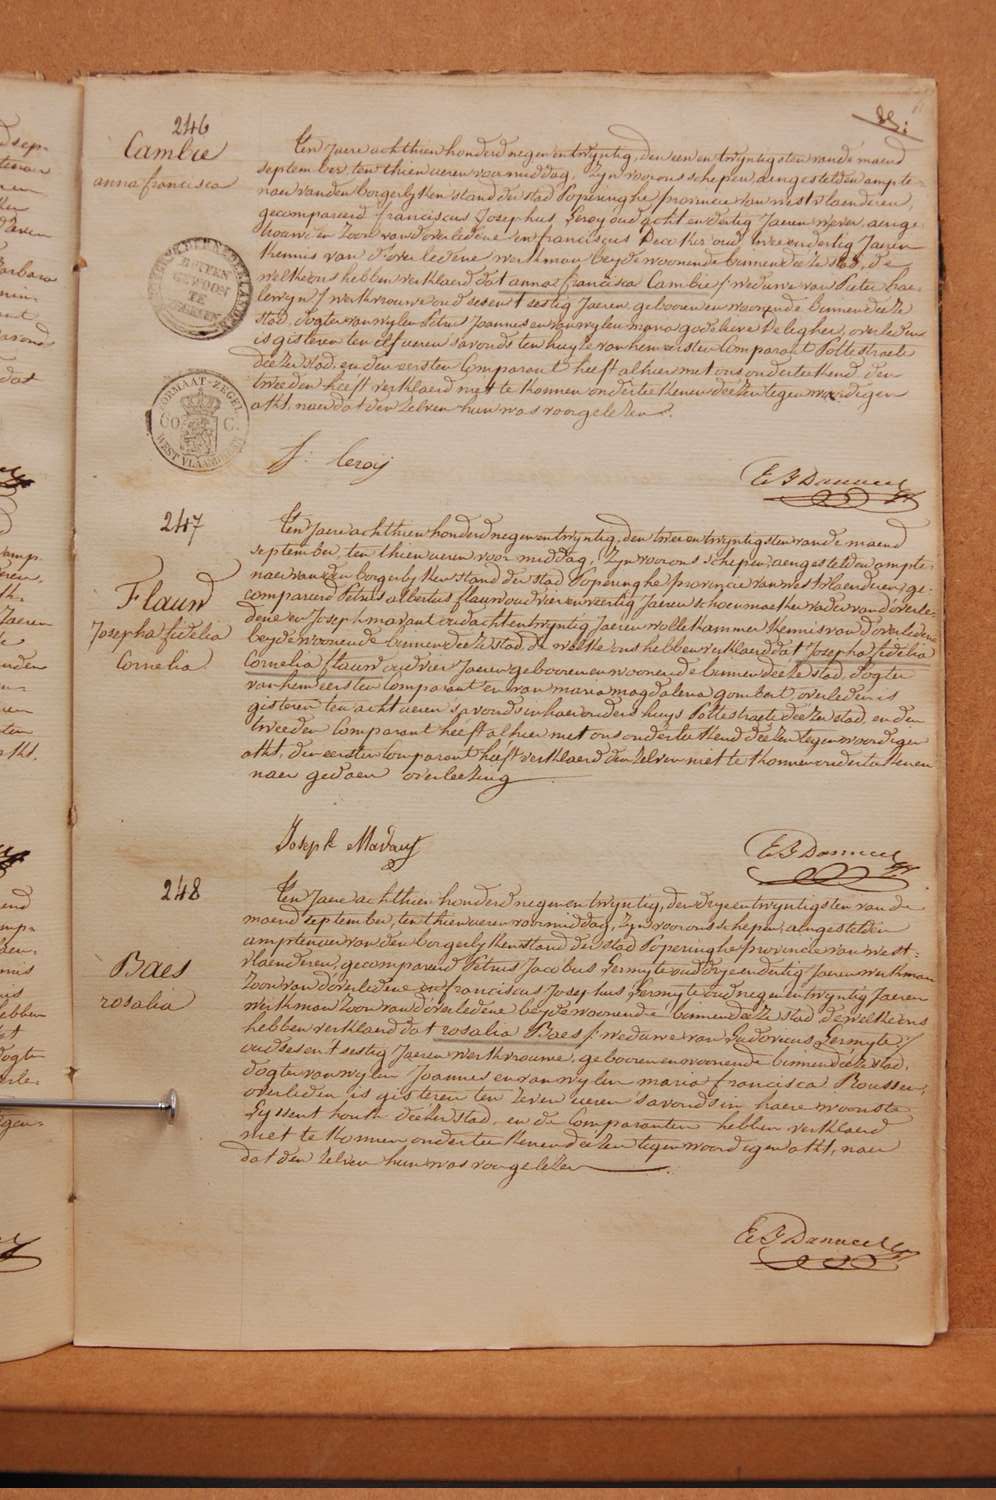 246
Cambie
anna francisca
Ten Jaere achthien honderd negen en twyntig, den een en twyntigsten van de maend
september, ten thien ueren voormiddag, Zyn voor ons schepen, aengestelden ampte-
naer van den borgerlyken stand der stad Poperinghe provincie van westvlaenderen,
gecompareerd franciscus Josephus Leroy oud acht en dertig Jaeren wever, aenge-
trouwden Zoon van d'overledene en franciscus oud twee en dertig Jaeren
kennis van d'overledene werkman beyde woonende binnen deeze stad, de
welke ons hebben verklaerd dat anna francisca Cambie / weduwe van Pieter
/ werkvrouwe oud ses en t sestig Jaeren, gebooren en woonende binnen deeze
stad, dogter van wylen Petrus Joannes en van wylen maria godelieve Delegher, overleden
is gisteren ten elf ueren s'avonds ten huyze van hem eersten Comparant Pottestraete
deezer stad, en den eersten Comparant heeft alhier met ons onderteekend, den
tweeden heeft verklaerd niet te konnen onderteekenen deezen tegenwoordigen
akt, naer dat den Zelven hun was voorgelezen.
BUITEN
GEWOON
TE
FORMAAT-ZEGEL
CO C.
WEST VLAANDEREN
f: leroij
247
Flauw
Josepha fidelia
Cornelia
Ten Jaere achthien honderd negen en twyntig, den twee en twyntigsten van de maend
september, ten thien ueren voormiddag, Zyn voor ons schepen, aengestelden ampte-
naer van den borgerlyken stand der stad Poperinghe provincie van westvlaenderen, ge-
compareerd Petrus albertus flauw oud vier en veertig Jaeren schoenmaeker vader van d'overle-
dene en Joseph oud acht en twyntig Jaeren wollekammer kennis van d'overledene
beyde woonende binnen deeze stad, de welke ons hebben verklaerd dat Josepha fidelia
Cornelia flauw oud vier Jaeren gebooren en woonende binnen deeze stad, dogter
van hem eersten Comparant en van maria magdalena overleden is
gisteren ten acht ueren s'avonds in haer ouders huys Pottestraete deezer stad, en den
tweeden Comparant heeft alhier met ons onderteekend deezen tegenwoordigen
akt, den eersten Comparant heeft verklaerd den zelven niet te konnen onderteekenen
naer gedaen overleezing
Joseph
248
Baes
rosalia
Ten Jaere achthien honderd negen en twyntig, den drye en twyntigsten van de
maend september, ten thien ueren voormiddag, Zyn voor ons schepen, aengestelden
amptenaer van den borgerlyken stand der stad Poperinghe provincie van west-
vlaenderen, gecompareerd Petrus Jacobus Lermyte oud drye en dertig Jaeren werkman
Zoon van d'overledene en franciscus Josephus Lermyte oud negen en twyntig Jaeren
werkman Zoon van d'overledene beyde woonende binnen deeze stad, de welke ons
hebben verklaerd dat rosalia Baes / weduwe van Ludovicus Lermyte /
oud ses en t sestig Jaeren werkvrouwe, gebooren en woonende binnen deeze stad,
dogter van wylen Joannes en van wylen maria francisca
overleden is gisteren ten zeven ueren s'avonds in haere woonste
deezer stad, en de Comparanten hebben verklaerd
niet te konnen onderteekenen deezen tegenwoordigen akt, naer
dat den Zelven hun was voorgelezen